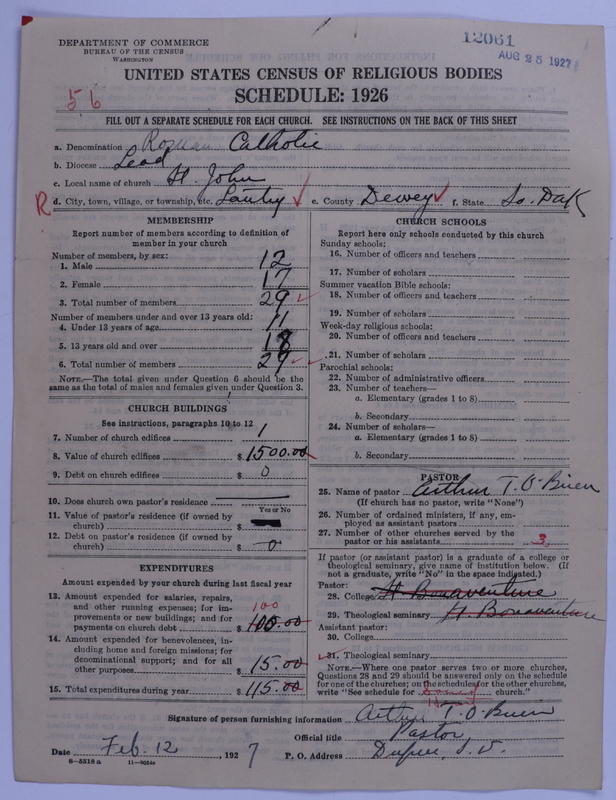 DEPARTMENT OF COMMERCE
BUREAU OF THE CENSUS
WASHINGTON
12061
AUG 25 1927
UNITED STATES CENSUS OF RELIGIOUS BODIES
56
SCHEDULE: 1926
FILL OUT A SEPARATE SCHEDULE FOR EACH CHURCH. SEE INSTRUCTIONS ON THE BACK OF THIS SHEET
a. Denomination Roman Catholic
b. Diocese Lead
c. Local name of church St. John
R d. City, town, village, or township, etc. Lantry e. County Dewey f. State So. Dak
MEMBERSHIP
Report number of members according to definition of
member in your church
Number of members, by sex:
1. Male 12
2. Female 17
3. Total number of members 29
Number of members under and over 13 years old:
4. Under 13 years of age 11
5. 13 years old and over 18
6. Total number of members 29
NOTE.—The total given under Question 6 should be the
same as the total of males and females given under Question 3.
CHURCH BUILDINGS
See instructions, paragraphs 10 to 12
7. Number of church edifices 1
8. Value of church edifices $ 1500.00
9. Debt on church edifices $ 0
10. Does church own pastor's residence
Yes or No
11. Value of pastor's residence (if owned by
church) $
12. Debt on pastor's residence (if owned by
church) $ 0
EXPENDITURES
Amount expended by your church during last fiscal year
13. Amount expended for salaries, repairs,
and other running expenses; for im-
provements or new buildings; and for
payments on church debt $ 100.00
100
14. Amount expended for benevolences, in-
cluding home and foreign missions; for
denominational support; and for all
other purposes $ 15.00
15. Total expenditures during year $ 115.00
CHURCH SCHOOLS
Report here only schools conducted by this church
Sunday schools:
16. Number of officers and teachers
17. Number of scholars
Summer vacation Bible schools:
18. Number of officers and teachers
19. Number of scholars
Week-day religious schools:
20. Number of officers and teachers
21. Number of scholars
Parochial schools:
22. Number of administrative officers
23. Number of teachers—
a. Elementary (grades 1 to 8)
b. Secondary
24. Number of scholars—
a. Elementary (grades 1 to 8)
b. Secondary
PASTOR
25. Name of pastor Arthur T. O'Brien
(If church has no pastor, write "None")
26. Number of ordained ministers, if any, em-
ployed as assistant pastors
27. Number of other churches served by the
pastor or his assistants 3
If pastor (or assistant pastor) is a graduate of a college or
theological seminary, give name of institution below. (If
not a graduate, write "No" in the space indicated.)
Pastor:
28. College St Bonaventure
29. Theological seminary St. Bonaventure
Assistant pastor:
30. College
31. Theological seminary
NOTE.—Where one pastor serves two or more churches,
Questions 28 and 29 should be answered only on the schedule
for one of the churches; on the schedules for the other churches,
write "See schedule for church."
Signature of person furnishing information Arthur T. O'Brien
Official title Pastor,
Date Feb. 12, 1927 P. O. Address Dupree, S. D.
8-5518 a